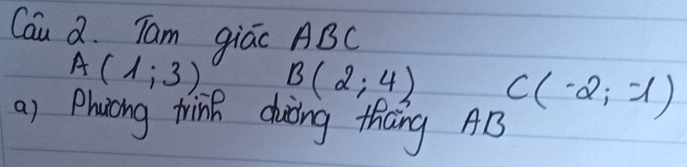 Câu 2. Tam giác ABC
A(1;3) B(2;4) C(-2;-1)
a) Phương trình đường thẳng AB